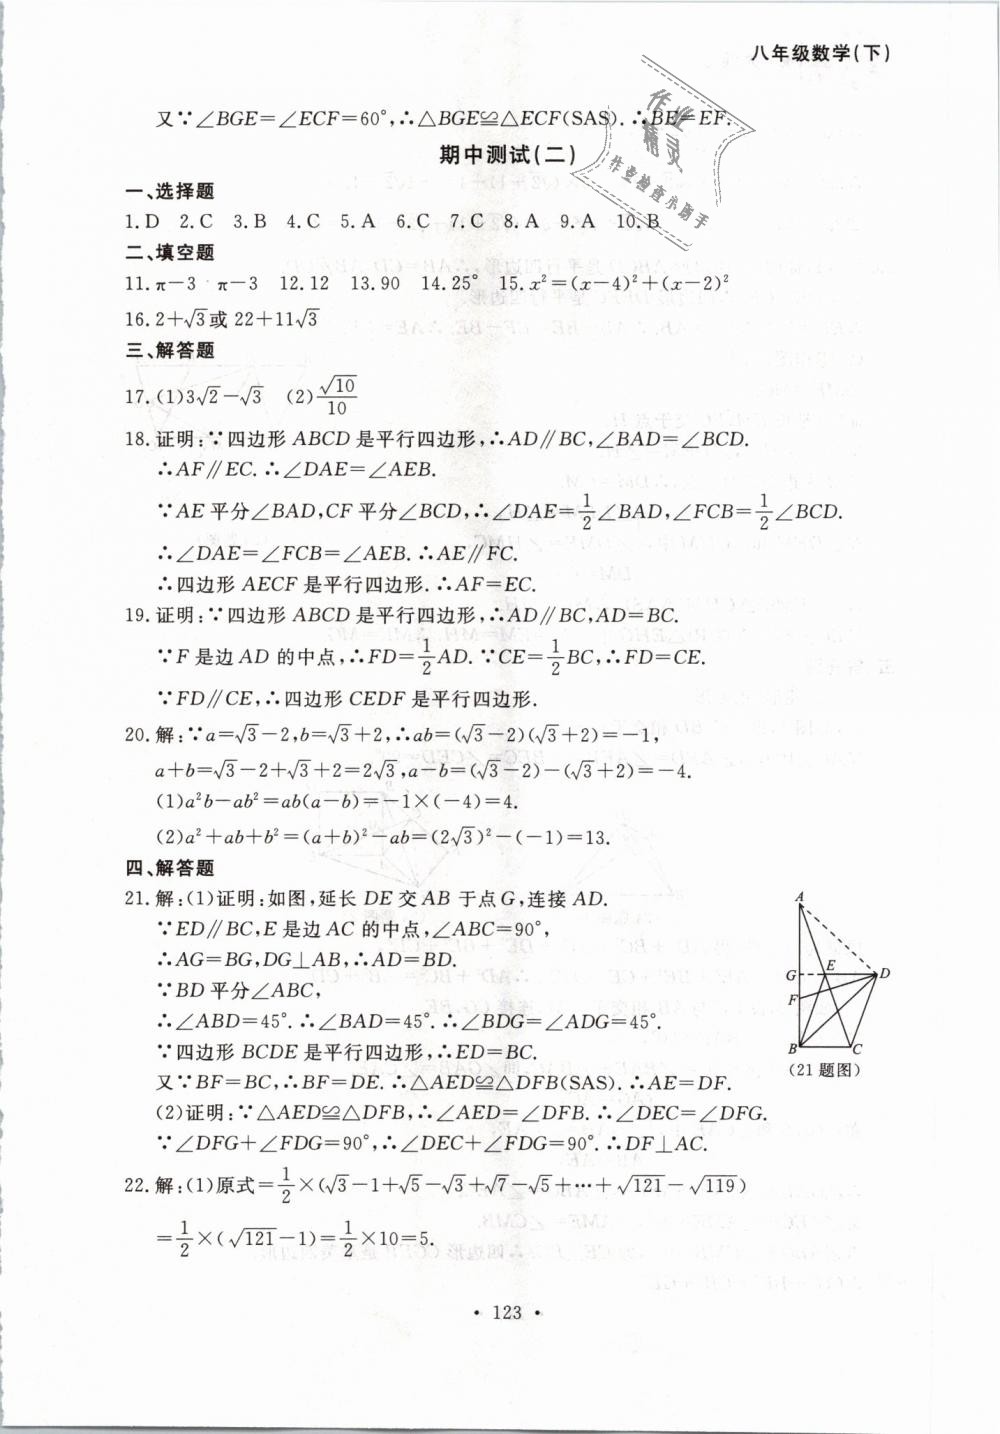 八年级数学(下)
又∵∠BGE=∠ECF=60°,∴△BGE≌△ECF(SAS).∴BE=EF.
期中测试(二)
一、选择题
1.D 2.C 3.B 4.C 5.A 6.C 7.C 8.A 9.A 10.B
二、填空题
11.π-3 π-3 12.12 13.90 14.25° 15.x²=(x-4)²+(x-2)²
16.2+√3或 22+11√3
三、解答题
17.(1)3√2-√3 (2)√10/10
18.证明:∵四边形 ABCD 是平行四边形,∴AD∥BC,∠BAD=∠BCD.
∴AF∥EC.∴∠DAE=∠AEB.
∵AE 平分∠BAD,CF 平分∠BCD,∴∠DAE=1/2∠BAD,∠FCB=1/2∠BCD.
∴∠DAE=∠FCB=∠AEB.∴AE∥FC.
∴四边形 AECF 是平行四边形.∴AF=EC.
19.证明:∵四边形 ABCD 是平行四边形,∴AD∥BC,AD=BC.
∵F 是边 AD 的中点,∴FD=1/2AD.∵CE=1/2BC,∴FD=CE.
∵FD∥CE,∴四边形 CEDF 是平行四边形.
20.解:∵a=√3-2,b=√3+2,∴ab=(√3-2)(√3+2)=-1,
a+b=√3-2+√3+2=2√3,a-b=(√3-2)-(√3+2)=-4.
(1)a²b-ab²=ab(a-b)=-1×(-4)=4.
(2)a²+ab+b²=(a+b)²-ab=(2√3)²-(-1)=13.
四、解答题
21.解:(1)证明:如图,延长 DE 交 AB 于点 G,连接 AD.
∵ED∥BC,E 是边 AC 的中点,∠ABC=90°,
∴AG=BG,DG⊥AB,∴AD=BD.
∵BD 平分∠ABC,
∴∠ABD=45°.∴∠BAD=45°.∴∠BDG=∠ADG=45°.
∵四边形 BCDE 是平行四边形,∴ED=BC.
又∵BF=BC,∴BF=DE.∴△AED≌△DFB(SAS).∴AE=DF.
(2)证明:∵△AED≌△DFB,∴∠AED=∠DFB.∴∠DEC=∠DFG.
∵∠DFG+∠FDG=90°,∴∠DEC+∠FDG=90°.∴DF⊥AC.
A
G
E
D
F
B
C
(21 题图)
22.解:(1)原式=1/2×(√3-1+√5-√3+√7-√5+…+√121-√119)
=1/2×(√121-1)=1/2×10=5.
· 123 ·
作业
精灵
作业检查小助手